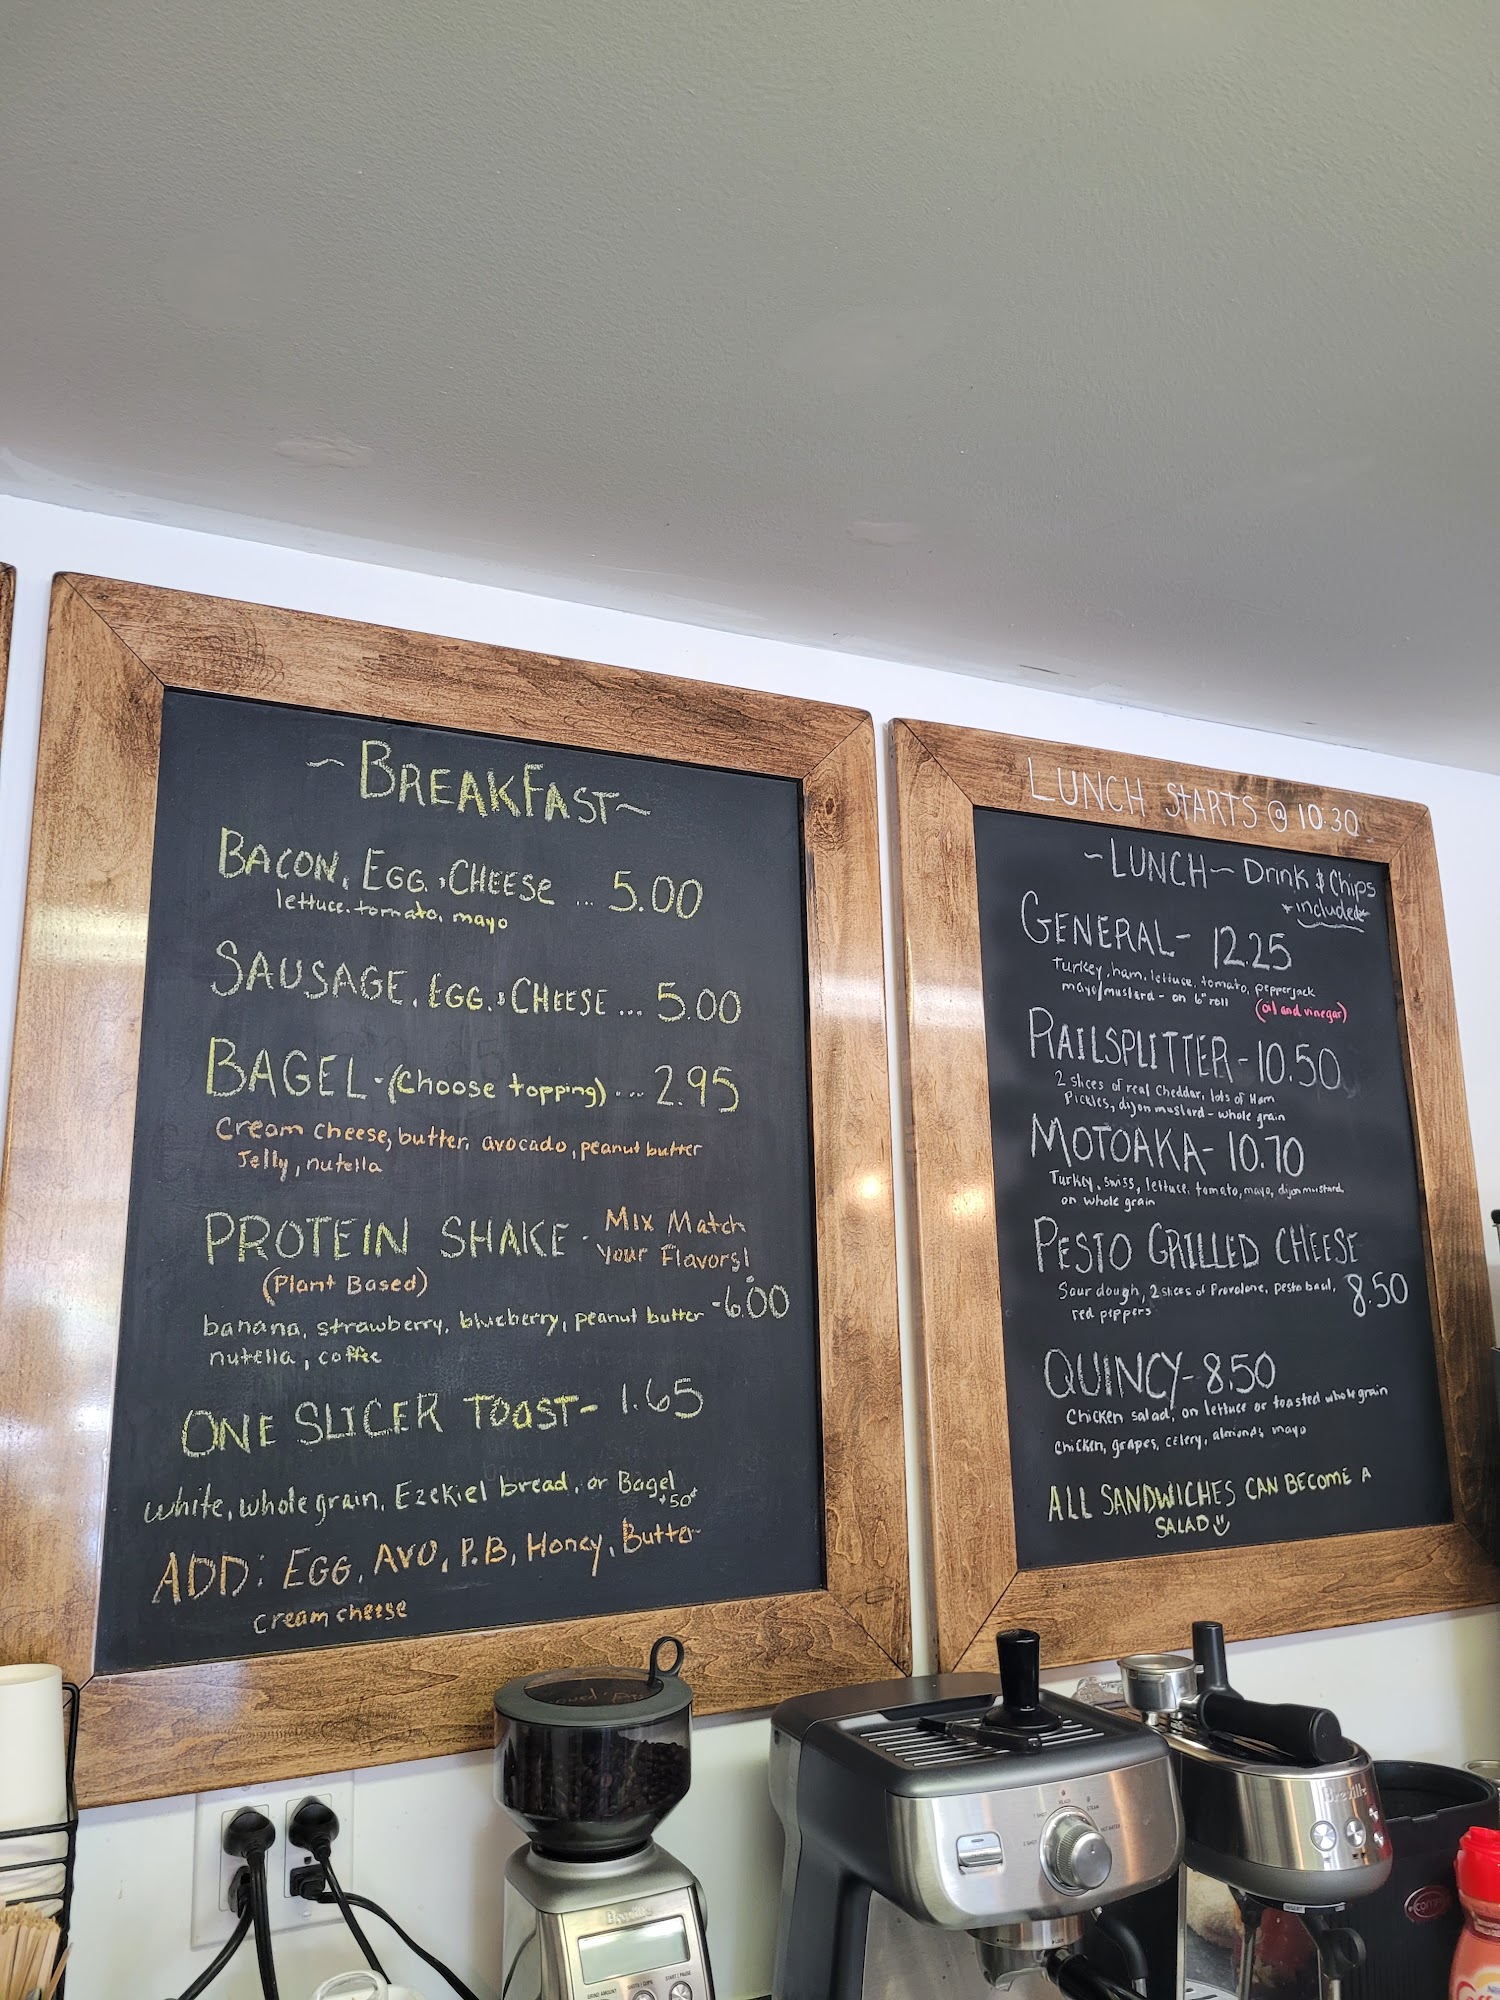 ~BREAKFAST~
BACON, EGG, & CHEESE ... 5.00
lettuce, tomato, mayo
SAUSAGE, EGG, & CHEESE ... 5.00
BAGEL - (Choose topping) ... 2.95
Cream cheese, butter, avocado, peanut butter
Jelly, nutella
PROTEIN SHAKE - Mix Match
Your Flavors!
(Plant Based)
banana, strawberry, blueberry, peanut butter -6.00
nutella, coffee
ONE SLICER TOAST- 1.65
white, whole grain, Ezekiel bread, or Bagel
+50¢
ADD: EGG, AVO, P.B, Honey, Butter
cream cheese
LUNCH STARTS @ 10:30
~LUNCH~ Drink & Chips
*included*
GENERAL- 12.25
Turkey, ham, lettuce, tomato, pepperjack
mayo/mustard - on 6" roll
(oil and vinegar)
RAILSPLITTER-10.50
2 slices of real Cheddar, lots of Ham
Pickles, dijon mustard - whole grain
MOTOAKA- 10.70
Turkey, swiss, lettuce, tomato, mayo, dijon mustard
on whole grain
PESTO GRILLED CHEESE
Sour dough, 2 slices of Provolone, pesto basil, 8.50
red peppers
QUINCY- 8.50
Chicken salad, on lettuce or toasted whole grain
chicken, grapes, celery, almonds, mayo
ALL SANDWICHES CAN BECOME A
SALAD
Breville
Breville